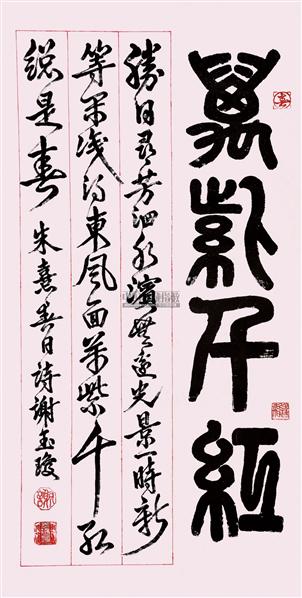 萬紫千紅
勝日尋芳泗水濱無邊光景一時新
等閑識得東風面萬紫千紅
總是春 朱熹春日詩 謝玉瓊